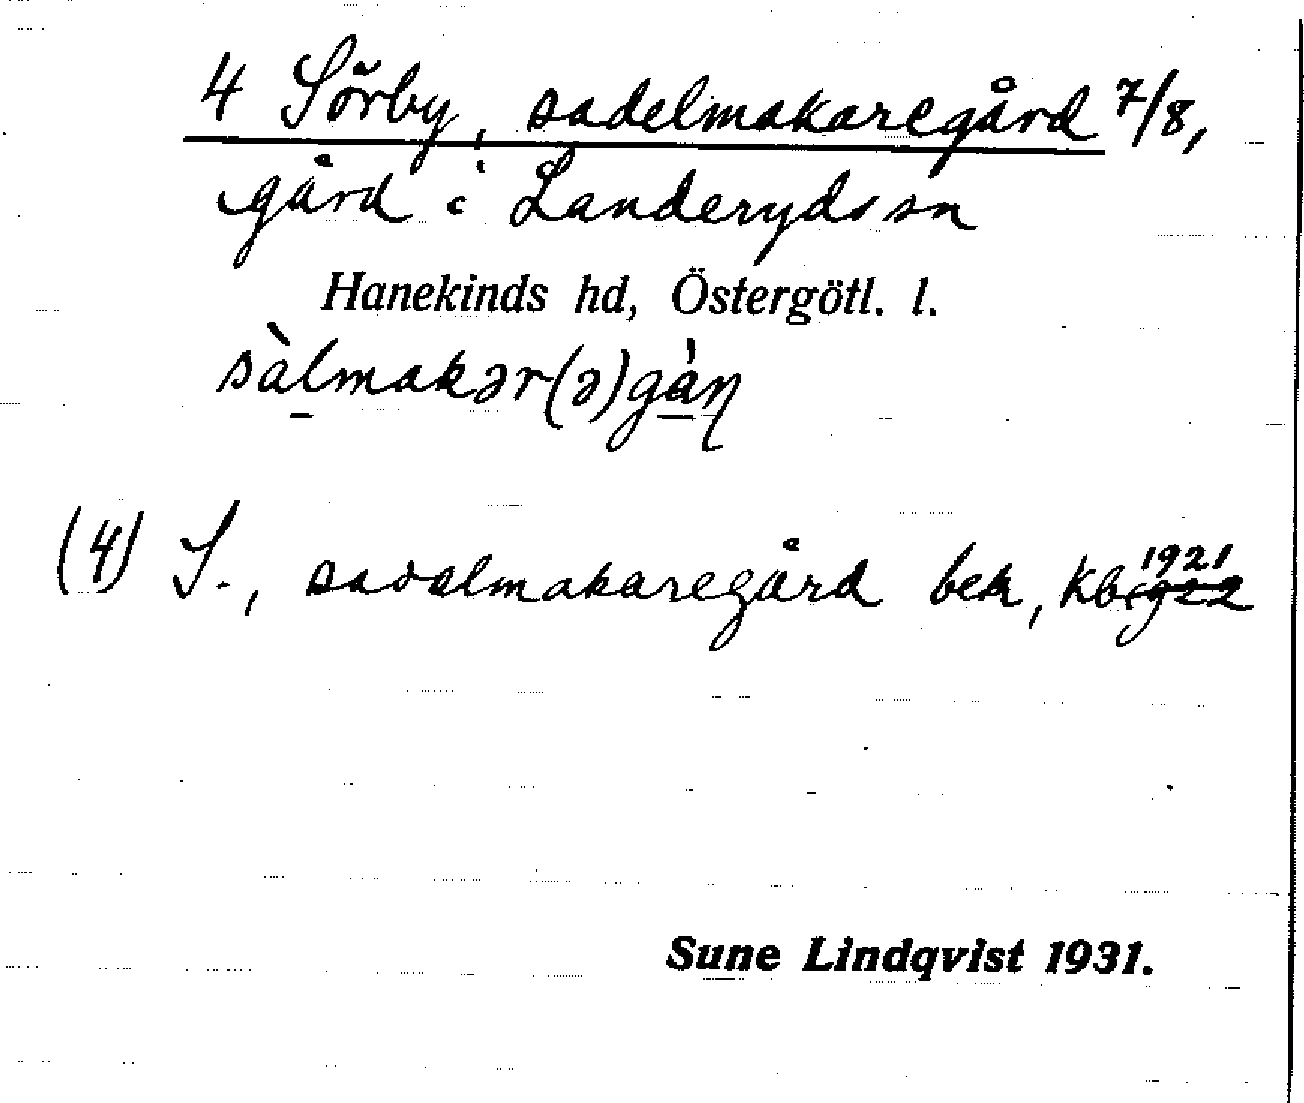 4 Sörby, sadelmakaregård 7/8,
gård i Landeryds sn
Hanekinds hd, Östergötl. l.
sàlmakər(ə)gàɳ
(4) S., sadelmakaregård bek, Kb 1921 1922
Sune Lindqvist 1931.